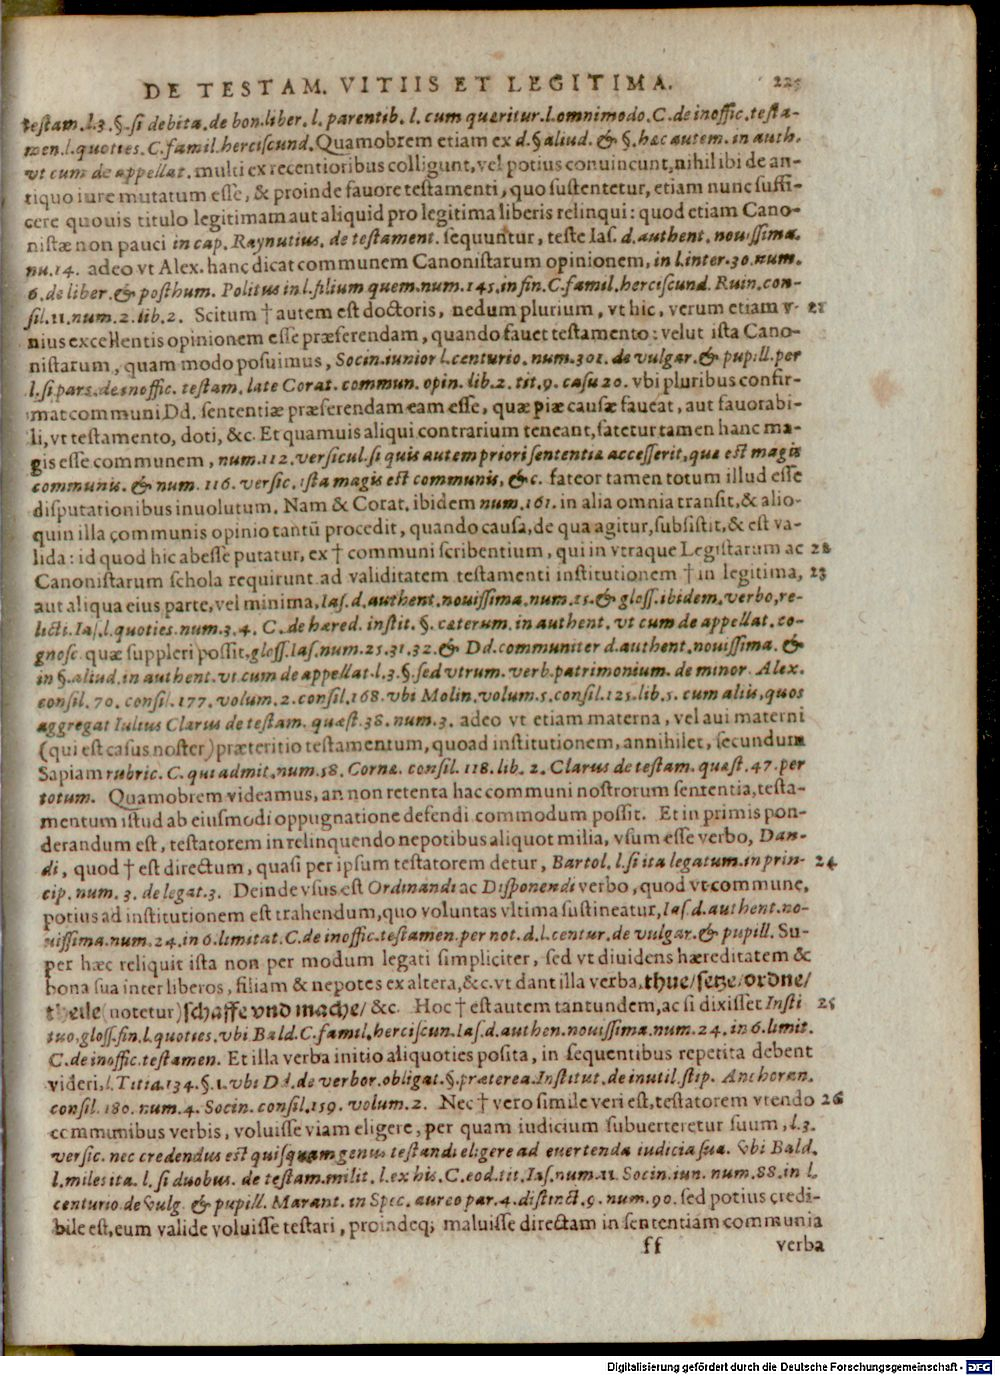 DE TESTAM. VITIIS ET LEGITIMA. 225
testam.l.3.§.si debita.de bon.liber.l.parentib.l.cum quæritur.l.omnimodo.C.de inoffic.testa-
men.l.quoties.C.famil.herciscund. Quamobrem etiam ex d.§ aliud. & §.hæc autem.in auth.
vt cum de appellat. multi ex recentioribus colligunt, vel potius conuincunt, nihil ibi de an-
tiquo iure mutatum esse, & proinde fauore testamenti, quo sustentetur, etiam nunc suffi-
cere quouis titulo legitimam aut aliquid pro legitima liberis relinqui: quod etiam Cano-
nistæ non pauci in cap. Raynutius. de testament. sequuntur, teste Ias. d.authent.nouissima.
nu.14. adeo vt Alex. hanc dicat communem Canonistarum opinionem, in l.inter.30.num.
6.de liber.& posthum. Politus in l.filium quem.num.145.in fin.C.famil.herciscund. Ruin.con-
sil.11.num.2.lib.2. Scitum † autem est doctoris, nedum plurium, vt hic, verum etiam v- 21
nius excellentis opinionem esse præferendam, quando fauet testamento: velut ista Cano-
nistarum, quam modo posuimus, Socin.iunior l.centurio. num.301. de vulgar.& pupill.per
l.si pars.de inoffic. testam. late Corat. commun. opin. lib.2. tit.9. casu 20. vbi pluribus confir-
mat communi Dd. sententiæ præferendam eam esse, quæ piæ causæ faueat, aut fauorabi-
li, vt testamento, doti, &c. Et quamuis aliqui contrarium teneant, fatetur tamen hanc ma-
gis esse communem, num.112.versicul.si quis autem priori sententiæ accesserit, quæ est magis
communis. & num. 116. versic. ista magis est communis, &c. fateor tamen totum illud esse
disputationibus inuolutum. Nam & Corat. ibidem num.161. in alia omnia transit, & alio-
quin illa communis opinio tantū procedit, quando causa, de qua agitur, subsistit, & est va-
lida: id quod hic abesse putatur, ex † communi scribentium, qui in vtraque Legistarum ac 22
Canonistarum schola requirunt ad validitatem testamenti institutionem † in legitima, 23
aut aliqua eius parte, vel minima, Ias.d.authent.nouissima.num.15.& gloss.ibidem.verbo, re-
licti. Ias.l.quoties.num.3.4. C.de hæred. instit. §. cæterum.in authent. vt cum de appellat. co-
gnosc. quæ suppleri possit, gloss.Ias.num.21.31.32.& Dd.communiter d.authent.nouissima. &
in §.aliud.in authent.vt cum de appellat.l.3.§.sed vtrum. verb.patrimonium.de minor. Alex.
consil.70.consil.177.volum.2.consil.168.vbi Molin.volum.5.consil.125.lib.5.cum aliis, quos
aggregat Iulius Clarus de testam. quæst.38.num.3. adeo vt etiam materna, vel aui materni
(qui est casus noster) præteritio testamentum, quoad institutionem, annihilet, secundum
Sapiam rubric. C. qui admit.num.58. Corne. consil. 118.lib. 2. Clarus de testam. quæst.47.per
totum. Quamobrem videamus, an non retenta hac communi nostrorum sententia, testa-
mentum istud ab eiusmodi oppugnatione defendi commodum possit. Et in primis pon-
derandum est, testatorem in relinquendo nepotibus aliquot milia, vsum esse verbo, Dan-
di, quod † est directum, quasi per ipsum testatorem detur, Bartol. l.si ita legatum.in prin- 24
cip. num. 3. de legat.3. Deinde vsus est Ordinandi ac Disponendi verbo, quod vt commune,
potius ad institutionem est trahendum, quo voluntas vltima sustineatur, Ias.d.authent.no-
uissima.num.24.in 6.limitat.C.de inoffic.testamen.per not.d.l.centur.de vulgar.& pupill. Su-
per hæc reliquit ista non per modum legati simpliciter, sed vt diuidens hæreditatem &
bona sua inter liberos, filiam & nepotes ex altera, &c. vt dant illa verba, thue/setze/ordne/
theile (notetur) schaffe vnd mache/ &c. Hoc † est autem tantundem, ac si dixisset Insti- 25
tuo, gloss.fin.l.quoties.vbi Bald.C.famil.herciscun.Ias.d.authen.nouissima.num.24.in 6.limit.
C.de inoffic.testamen. Et illa verba initio aliquoties posita, in sequentibus repetita debent
videri, l.Titia.134.§.1.vbi Dd.de verbor.obligat.§.præterea.Institut.de inutil.stip. Anchoran.
consil.180.num.4. Socin. consil.159. volum.2. Nec † vero simile veri est, testatorem vtendo 26
communibus verbis, voluisse viam eligere, per quam iudicium subuerteretur suum, l.3.
versic. nec credendus est quisquam genus testandi eligere ad euertenda iudicia sua. vbi Bald.
l.miles ita. l. si duobus. de testam.milit. l.ex his.C.eod.tit.Ias.num.11. Socin.iun. num.88.in l.
centurio.de vulg. & pupill. Marant. in Spec. aureo par.4.distinct.9.num.90. sed potius credi-
bile est, eum valide voluisse testari, proindeq; maluisse directam in sententiam communia
ff verba
Digitalisierung gefördert durch die Deutsche Forschungsgemeinschaft - DFG